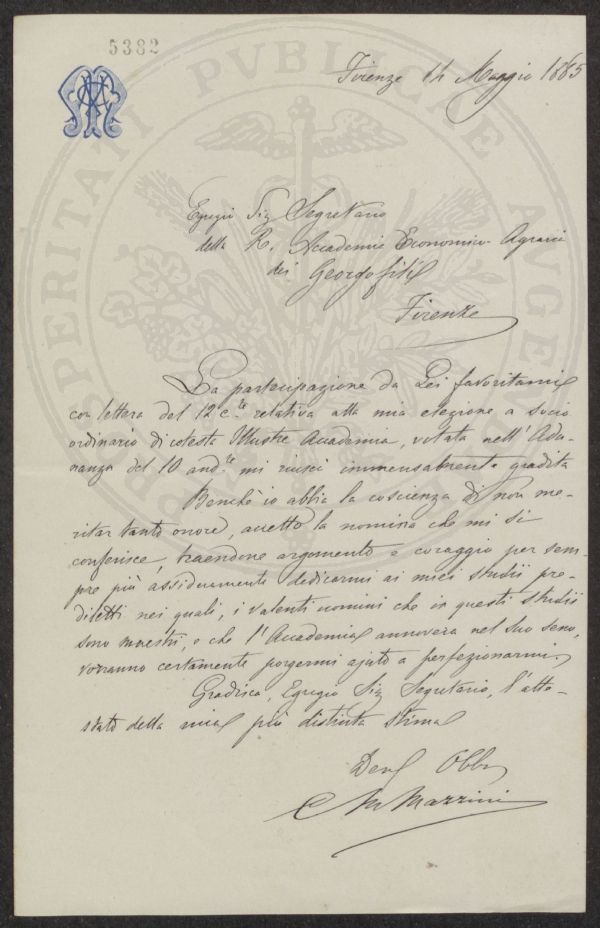 5382
Firenze 14 Maggio 1885
Egregio Sig Segretario
della R. Accademia Economico-Agraria
dei Georgofili
Firenze
La partecipazione da Lei favoritami
con lettera del 12 c.te relativa alla mia elezione a socio
ordinario di cotesta Illustre Accademia, votata nell'Adu-
nanza del 10 and.te mi riuscì immensamente gradita
Benchè io abbia la coscienza di non me-
ritar tanto onore, accetto la nomina che mi si
conferisce, traendone argomento e coraggio per sem-
pre più assiduamente dedicarmi ai miei studii pre-
diletti nei quali, i valenti uomini che in questi studii
sono maestri, e che l'Accademia annovera nel suo seno,
vorranno certamente porgermi ajuto a perfezionarmi.
Gradisca, Egregio Sig Segretario, l'atte-
stato della mia più distinta stima
Dev Obb
C M Mazzini
PROSPERITATI PVBLICAE AVGENDAE